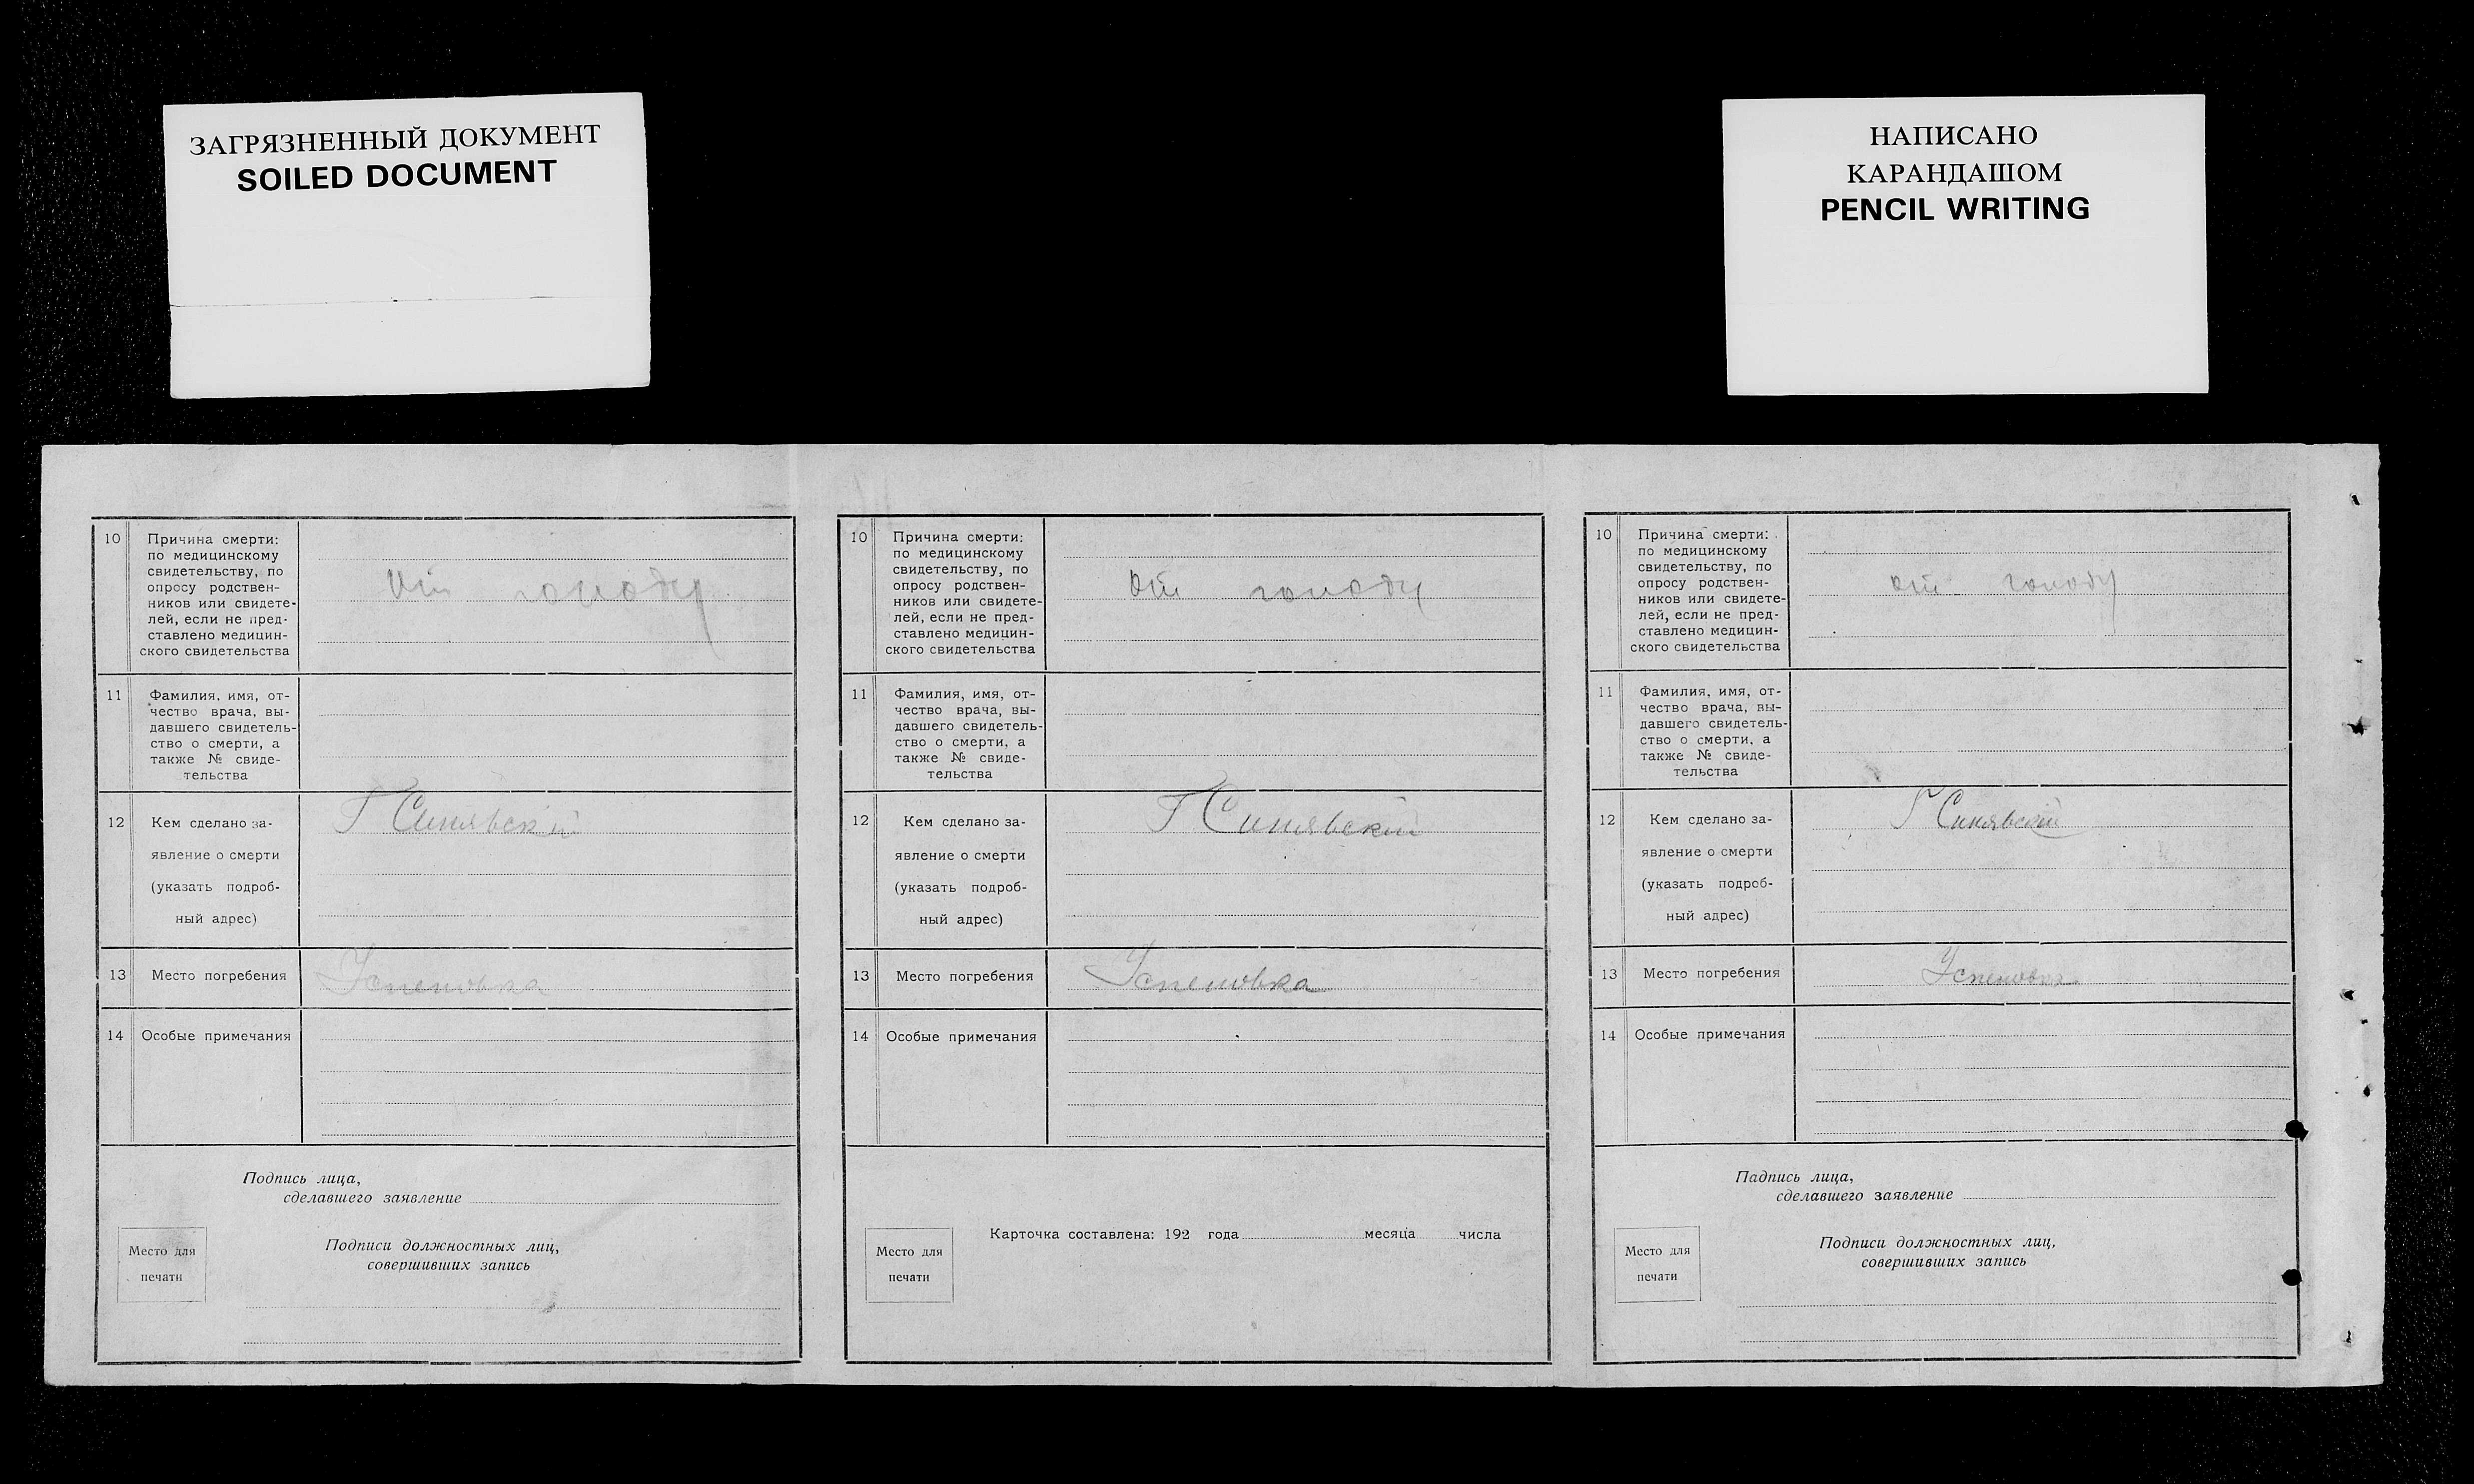 ЗАГРЯЗНЕННЫЙ ДОКУМЕНТ
SOILED DOCUMENT
НАПИСАНО
КАРАНДАШОМ
PENCIL WRITING
10
Причина смерти:
по медицинскому
свидетельству, по
опросу родствен-
ников или свидете-
лей, если не пред-
ставлено медицин-
ского свидетельства
от голоду
11
Фамилия, имя, от-
чество врача, вы-
давшего свидетель-
ство о смерти, а
также № свиде-
тельства
12
Кем сделано за-
явление о смерти
(указать подроб-
ный адрес)
Г Синявский
13
Место погребения
Успеновка
14
Особые примечания
Подпись лица,
сделавшего заявление
Место для
печати
Подписи должностных лиц,
совершивших запись
10
Причина смерти:
по медицинскому
свидетельству, по
опросу родствен-
ников или свидете-
лей, если не пред-
ставлено медицин-
ского свидетельства
от голоду
11
Фамилия, имя, от-
чество врача, вы-
давшего свидетель-
ство о смерти, а
также № свиде-
тельства
12
Кем сделано за-
явление о смерти
(указать подроб-
ный адрес)
Г Синявский
13
Место погребения
Успеновка
14
Особые примечания
Карточка составлена: 192 года месяца числа
Место для
печати
10
Причина смерти:
по медицинскому
свидетельству, по
опросу родствен-
ников или свидете-
лей, если не пред-
ставлено медицин-
ского свидетельства
от голоду
11
Фамилия, имя, от-
чество врача, вы-
давшего свидетель-
ство о смерти, а
также № свиде-
тельства
12
Кем сделано за-
явление о смерти
(указать подроб-
ный адрес)
Г Синявский
13
Место погребения
Успеновка
14
Особые примечания
Падпись лица,
сделавшего заявление
Место для
печати
Подписи должностных лиц,
совершивших запись